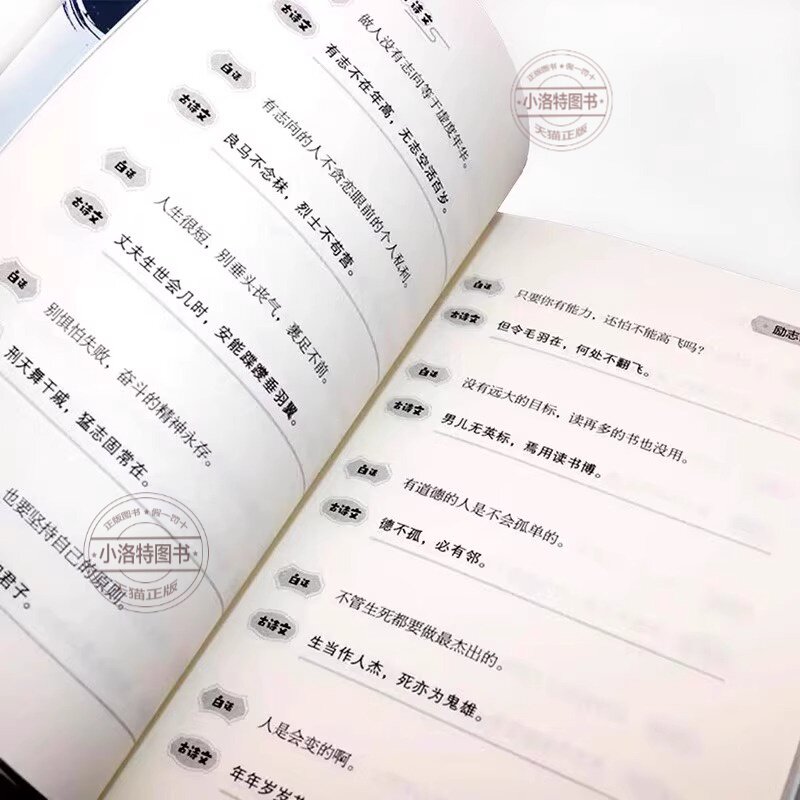 古诗文
做人没有志向等于虚度年华。
有志不在年高，无志空活百岁。
白话
有志向的人不贪恋眼前的个人私利。
古诗文
良马不念秣，烈士不苟营。
白话
人生很短，别垂头丧气，裹足不前。
古诗文
丈夫生世会几时，安能蹀躞垂羽翼。
白话
别惧怕失败，奋斗的精神永存。
刑天舞干戚，猛志固常在。
也要坚持自己的原则。
君子。
励志
白话
只要你有能力，还怕不能高飞吗？
古诗文
但令毛羽在，何处不翻飞。
白话
没有远大的目标，读再多的书也没用。
古诗文
男儿无英标，焉用读书博。
白话
有道德的人是不会孤单的。
古诗文
德不孤，必有邻。
白话
不管生死都要做最杰出的。
古诗文
生当作人杰，死亦为鬼雄。
白话
人是会变的啊。
古诗文
年年岁岁
正版图书 假一罚十
小洛特图书
天猫正版
正版图书 假一罚十
小洛特图书
天猫正版